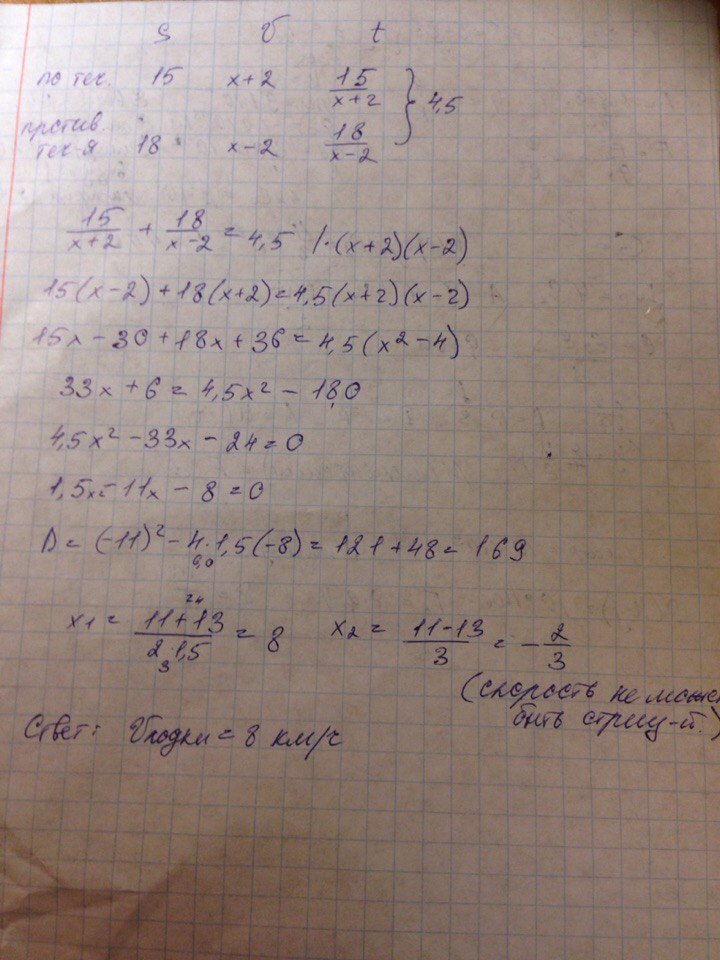 S v t
по теч. 15 x+2 15/(x+2) } 4,5
против.
теч-я 18 x-2 18/(x-2)
15/(x+2) + 18/(x-2) = 4,5 /·(x+2)(x-2)
15(x-2)+18(x+2)=4,5(x+2)(x-2)
15x-30+18x+36=4,5(x²-4)
33x+6=4,5x²-18,0
4,5x²-33x-24=0
1,5x=-11x-8=0
D=(-11)²-4·1,5(-8)=121+48=169
6,0
x1 = (11+13)/(2·1,5) = 8 x2 = (11-13)/3 = -2/3
24
3
(скорость не может
быть отриц-й.)
Ответ: Vлодки = 8 км/ч